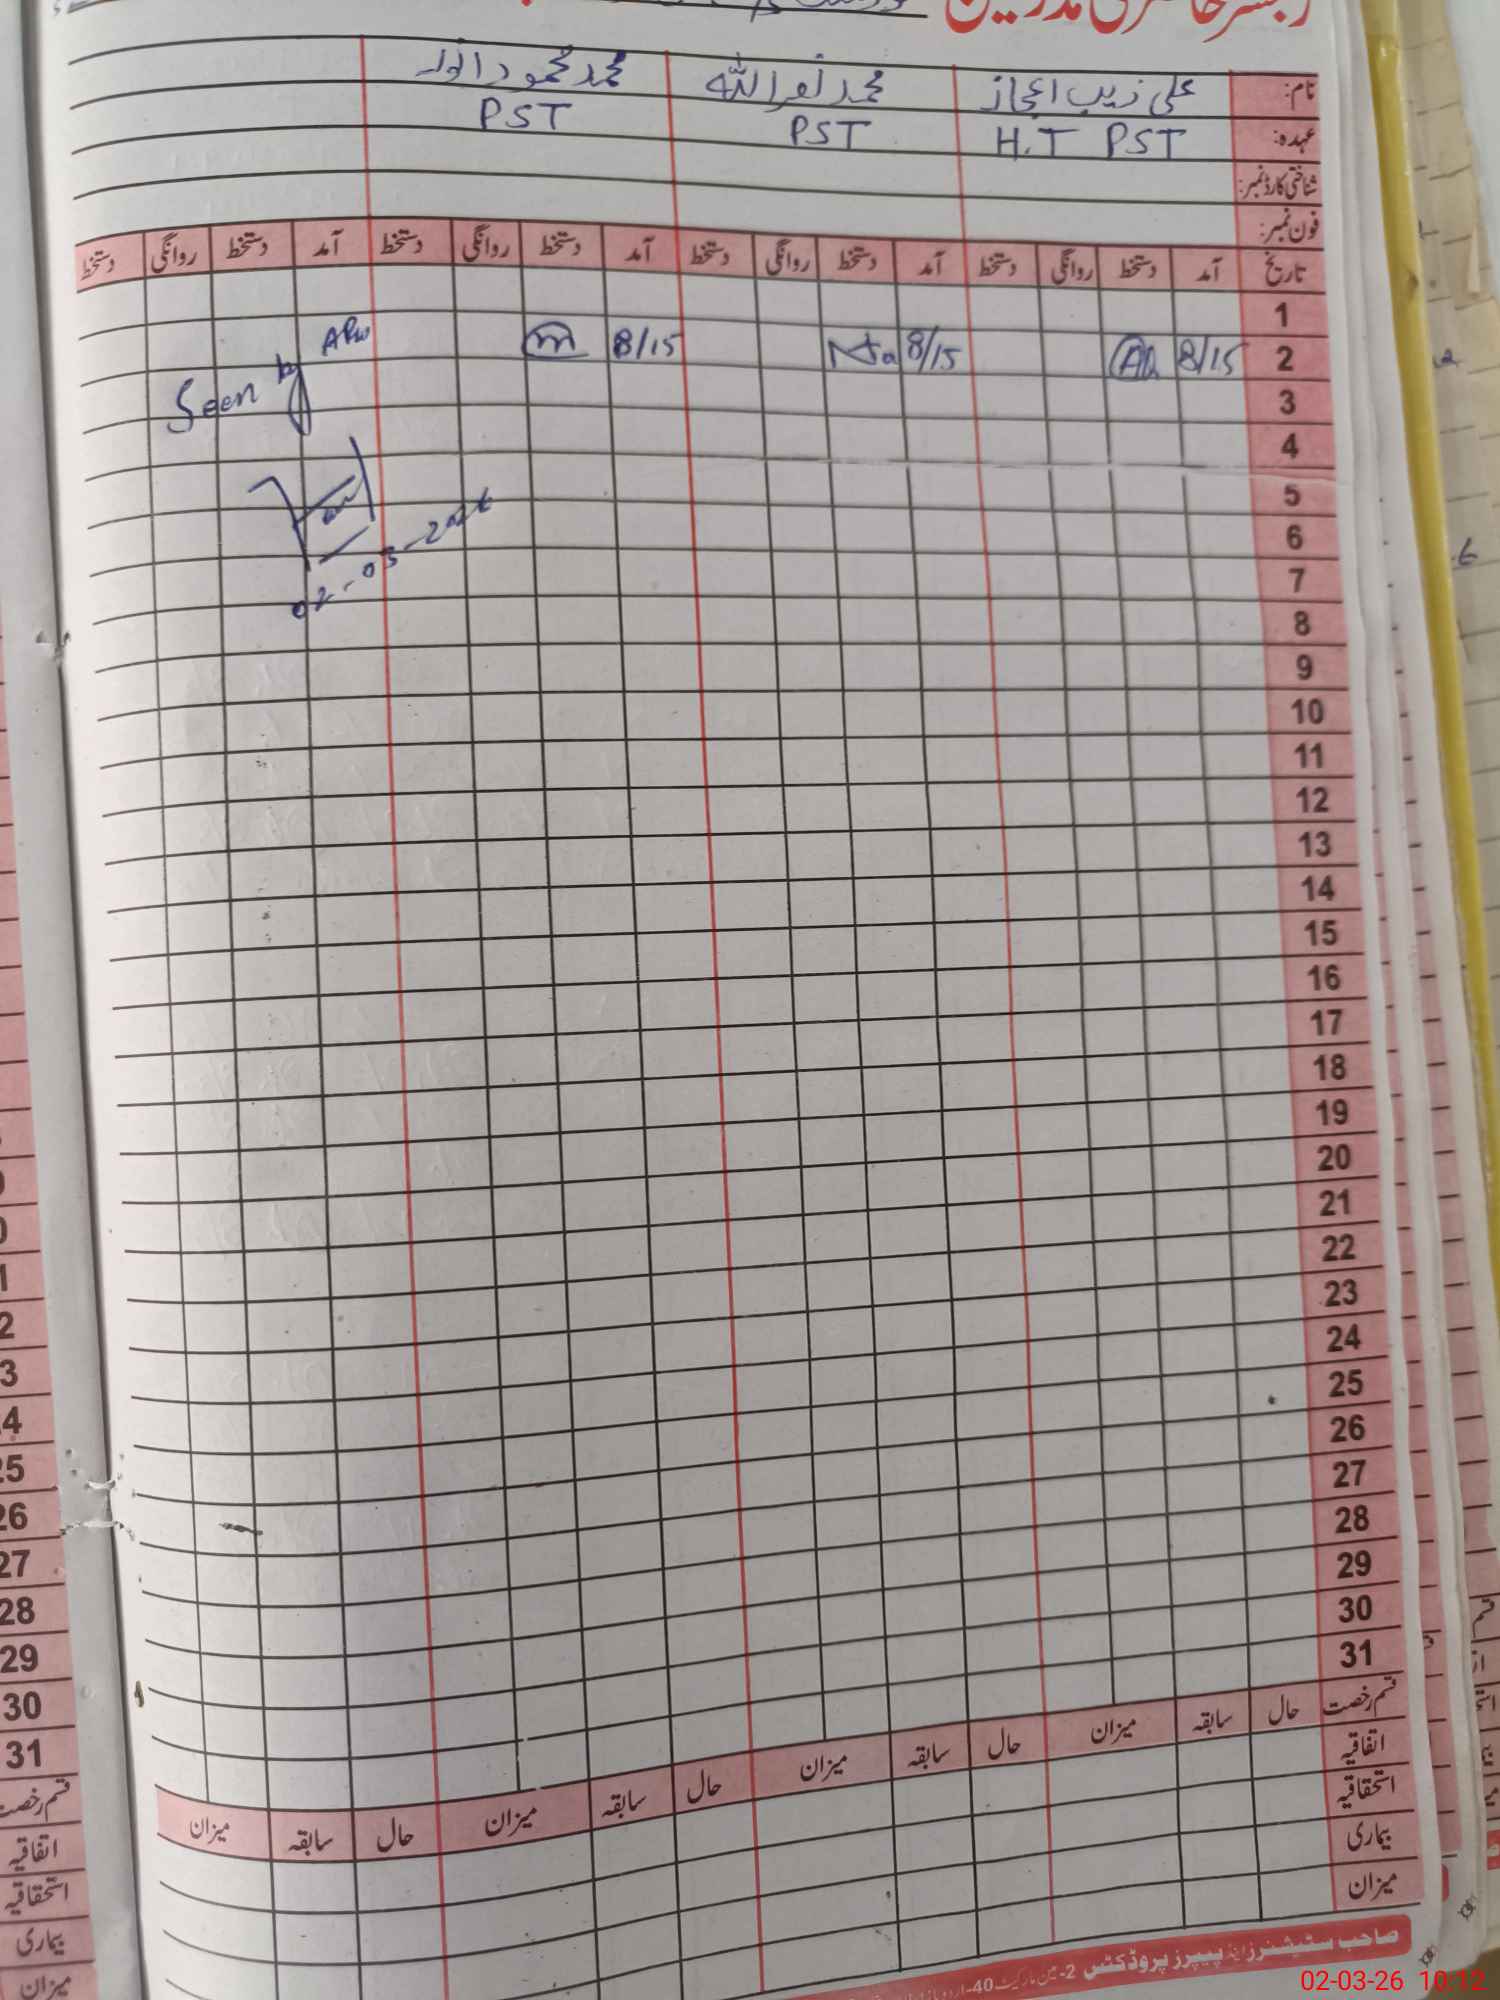 رجسٹر حاضری مدرسین
نام: علی زیب اعجاز محمد نصر اللہ محمد محمود انور
عہدہ: H.T PST PST PST
شناختی کارڈ نمبر:
فون نمبر:
تاریخ آمد دستخط روانگی دستخط آمد دستخط روانگی دستخط آمد دستخط روانگی دستخط آمد دستخط روانگی دستخط
1
2 8/15 8/15 8/15
Seen by
02-03-2026
3
4
5
6
7
8
9
10
11
12
13
14
15
16
17
18
19
20
21
22
23
24
25
26
27
28
29
30
31
قسم رخصت حال سابقہ میزان حال سابقہ میزان حال سابقہ میزان حال سابقہ میزان
اتفاقیہ
استحقاقیہ
بیماری
میزان
صاحب سٹیشنرز اینڈ پیپرز پروڈکٹس 2-مین مارکیٹ 40-اردو بازار
25
26
27
28
29
30
31
قسم رخصت
اتفاقیہ
استحقاقیہ
بیماری
میزان
02-03-26 10:12